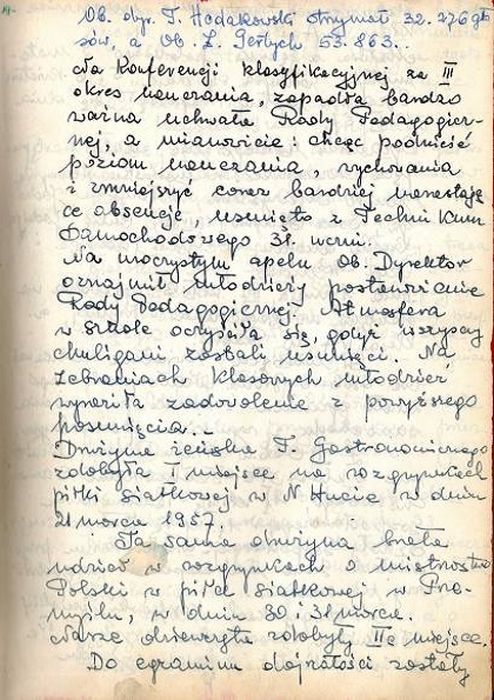 Ob. dyr. T. Hodakowski otrzymał 32.276 gło
sów, a Ob. Z. Gerłych 53.863..
Na Konferencji klasyfikacyjnej za III
okres nauczania, zapadła bardzo
ważna uchwała Rady Pedagogicz-
nej, a mianowicie: chcąc podnieść
poziom nauczania, wychowania
i zmniejszyć coraz bardziej narastają
ce absencje, usunięto z Technikum
Samochodowego 31. uczni.
Na uroczystym apelu Ob. Dyrektor
oznajmił młodzieży postanowienie
Rady Pedagogicznej. Atmosfera
w szkole oczyściła się, gdyż wszyscy
chuligani zostali usunięci. Na
zebraniach klasowych młodzież
wyraziła zadowolenie z powyższego
posunięcia..
Drużyna żeńska T. Gastronomicznego
zdobyła I miejsce na rozgrywkach
piłki siatkowej w N Hucie w dniu
21 marca 1957.
Ta sama drużyna brała
udział w rozgrywkach o mistrostwo
Polski w piłce siatkowej w Prze-
myślu, w dniu 30 i 31 marca.
Nasze dziewczęta zdobyły II-e miejsce.
Do egzaminu dojrzałości zostały